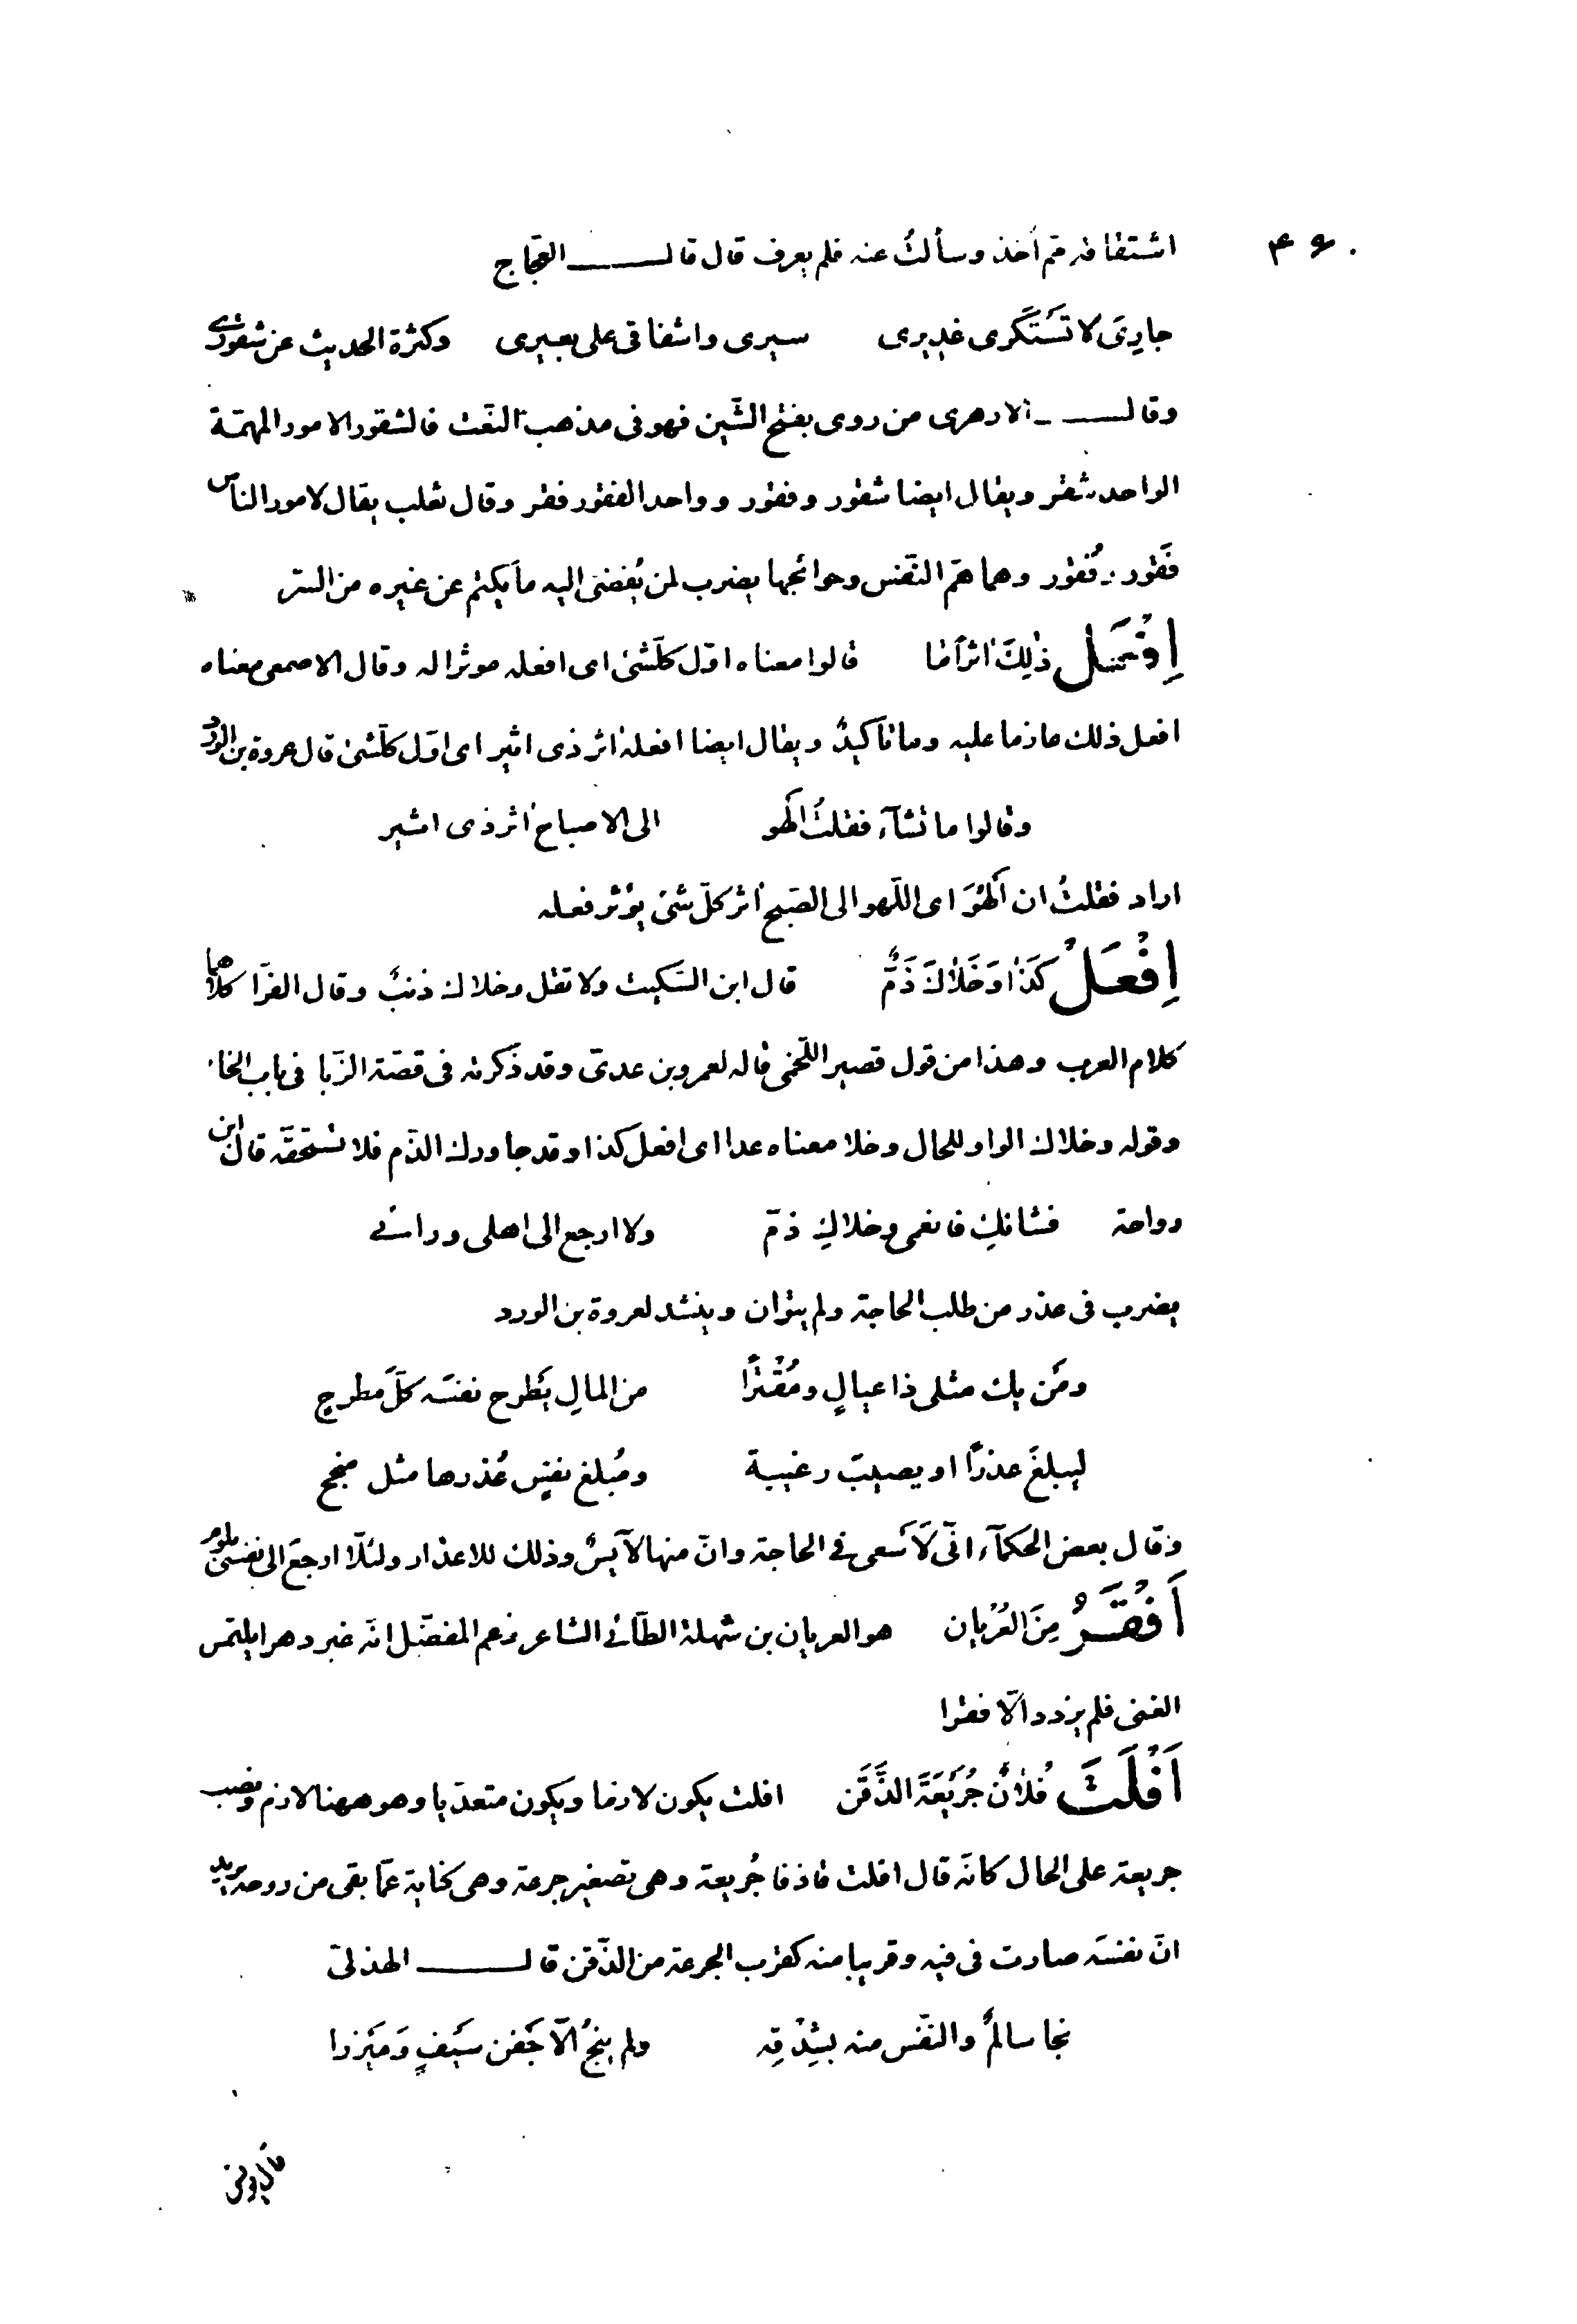 ۴۶۰
اشتقاقه مّم أخذ وسألتُ عنه فلم يعرف قال قالـــــــ العجّاج
جارِىَ لا تَسْتَنْكرى غديرى سيرى واشفاقى على بعيرى وكثرة الحديث عن شقورى
وقالـــــ الازهرى من روى بفتح الشّين فهو فى مذهب النّعت فالشقور الامور المهمّة
الواحد شقر ويقال ايضا شقور وفقور وواحد الفقور فقر وقال ثعلب يقال لامور الناس
فَقور وفُقور وهما همّ النّفس وحوائجها يضرب لمن يُفضىٰ اليه ما يكتم عن غيره من السّر
اِفْعَلْ ذٰلِكَ اٰثراً مّا قالوا معناه اوّل كلّ شئ اى افعله موثرا له وقال الاصمعى معناه
افعل ذلك عازما عليه وما تأكيدٌ ويقال ايضا افعله اثر ذى اثير اى اوّل كلّ شئ قال عروة بن الورد
وقالوا ما تشآء فقلتُ اَلهو الى الاصباح اٰثر ذى اثير
اراد فقلتُ ان اَلهُوَ اى اللّهو الى الصّبح اٰثر كلّ شئ يؤثر فعله
اِفْعَلْ كَذٰا وَخَلاٰكَ ذَمٌّ قال ابن السّكيت ولا تقل وخلاك ذنبٌ وقال الفرّا كلاهما
كلام العرب وهذا من قول قصير اللّخمى قاله لعمرو بن عدىّ وقد ذكرته فى قصّة الزّبا فى باب الخاء
وقوله وخلاك الواو للحال وخلا معناه عدا اى افعل كذا وقد جاوزك الذّم فلا تستحقّه قال ابن
رواحة فشانكِ فانعمى وخلاكِ ذمّ ولا ارجع الى اهلى ورائى
يضرب فى عذر من طلب الحاجة ولم يتوان وينشد لعروة بن الورد
ومَن يك مثلى ذا عيالٍ ومُقْتِرًا من المالِ يَطرح نفسَه كلَّ مطرحٍ
ليبلغَ عذرًا او يصيبَ رغيبة ومُبلغ نفسٍ عُذرها مثل منجح
وقال بعض الحكمآء انّى لَاَسعى فى الحاجة وانّ منها لآيسٌ وذلك للاعذار ولئلّا ارجعَ الى نفسى بلوم
اَفْقَرُ مِنَ الْعُرْيان هو العريان بن شهلة الطّآئى الشاعر زعم المفضّل انّه غبر دهرا يلتمس
الغنى فلم يزدد الّا فقرا
اَفْلَتَ فُلاٰنٌ جُرَيْعَةَ الذَّقَن افلت يكون لازما ويكون متعدّيا وهو ههنا لازم ونصب
جريعة على الحال كانّه قال افلت قاذفا جُريعة وهى تصغير جرعة وهى كناية عمّا بقى من روحه يريد
انّ نفسَه صارت فى فيه وقريبا منه كقرب الجرعة من الذّقن قالـــــــ الهذلىّ
نجا سالمٌ والنّفس منه بشِدْقِه ولم ينجُ الّا جَفنَ سَيفٍ وَمَيْزرا